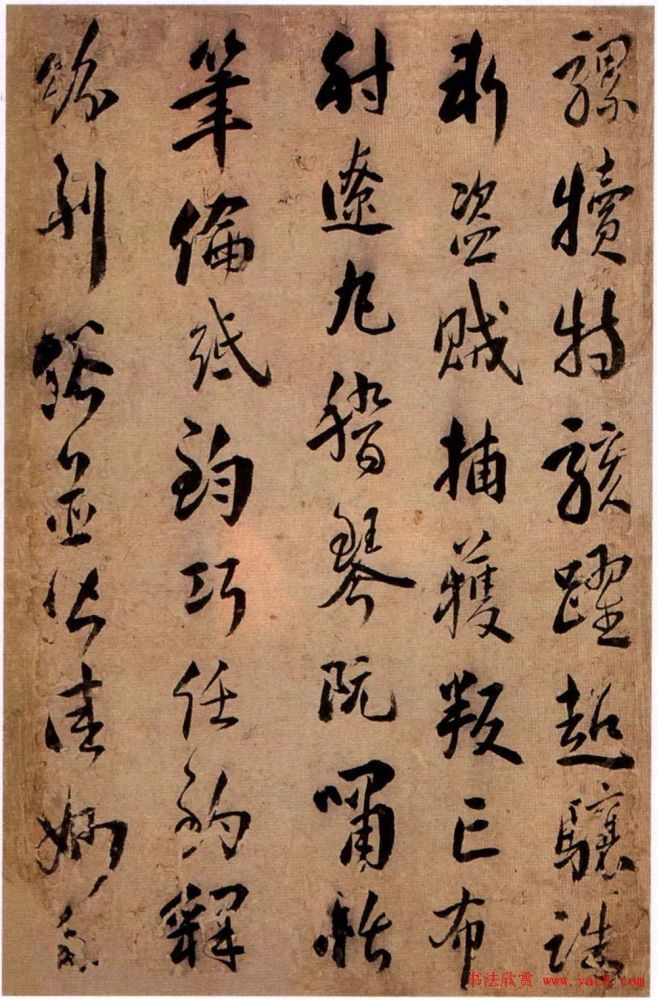 騾犢特駭躍超驤誅
斬盜賊捕獲叛亡布
射遼丸嵇琴阮嘯恬
筆倫紙鈞巧任釣釋
紛利俗並皆佳妙毛
书法欣赏 www.yac8.com